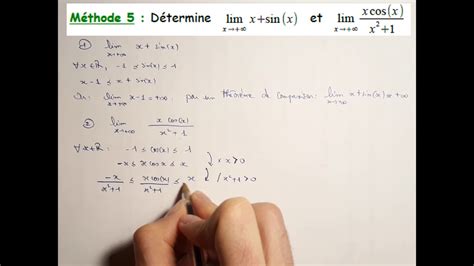 Méthode 5 : Détermine lim x→+∞ x+sin(x) et lim x→+∞ x cos(x) / x²+1
① lim x→+∞ x + sin(x)
∀x∈ℝ, -1 ≤ sin(x) ≤ 1
x-1 ≤ x + sin(x)
Or: lim x→+∞ x-1 = +∞, par un théorème de comparaison: lim x→+∞ x+sin(x) = +∞
② lim x→+∞ x cos(x) / x²+1
∀x∈ℝ: -1 ≤ cos(x) ≤ 1
-x ≤ x cos x ≤ x ↓ × x>0
-x / x²+1 ≤ x cos(x) / x²+1 ≤ x ↓ /x²+1 >0